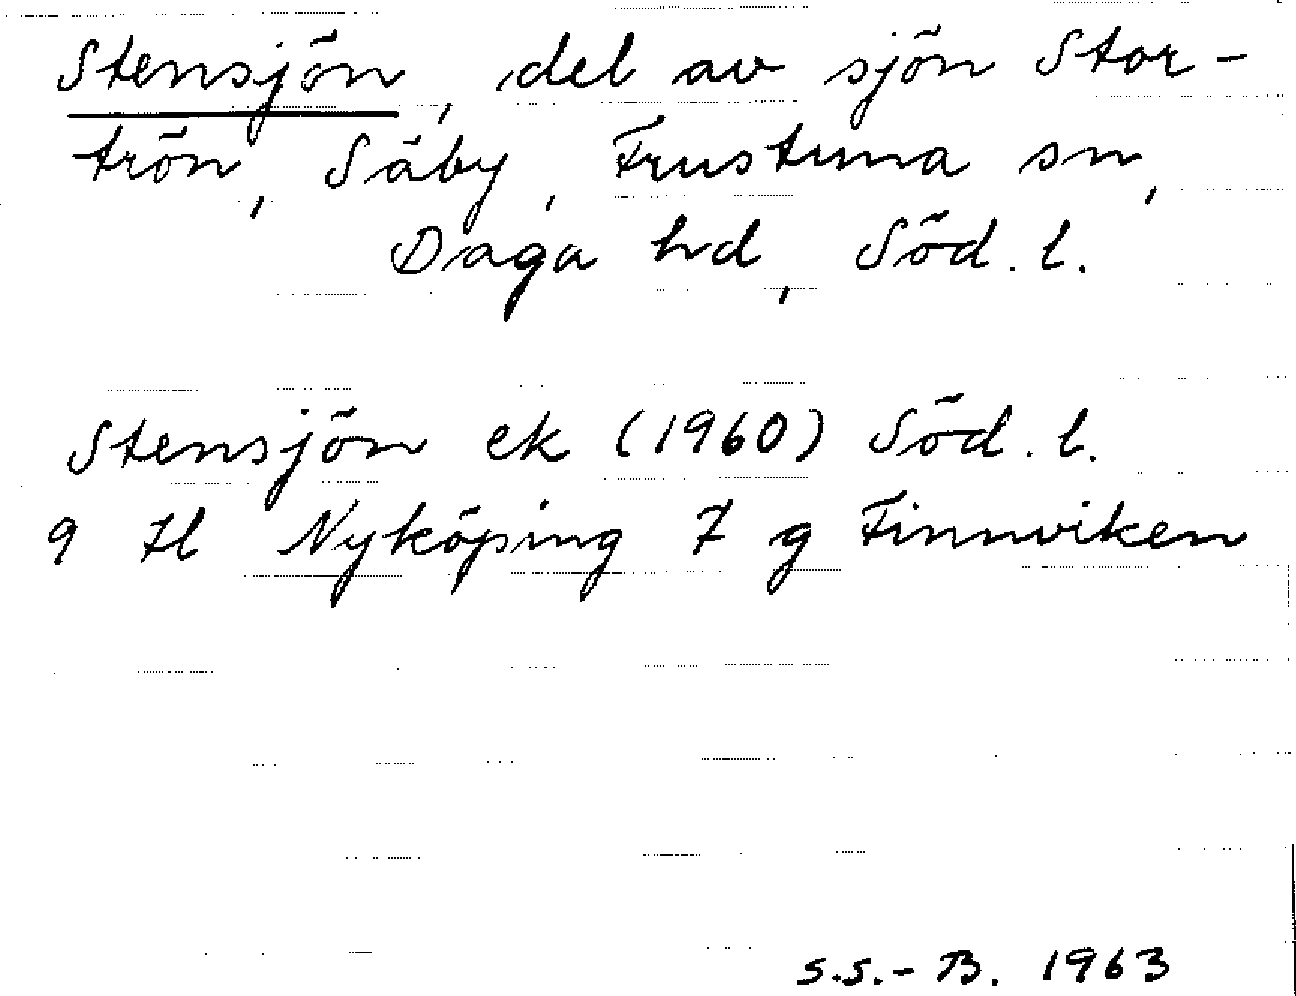 Stensjön, del av sjön Stor-
trön, Säby, Frustuna sn,
Daga hd, Söd. l.
Stensjön ek (1960) Söd. l.
9 H Nyköping 7 g Finnviken
S.S.-B. 1963